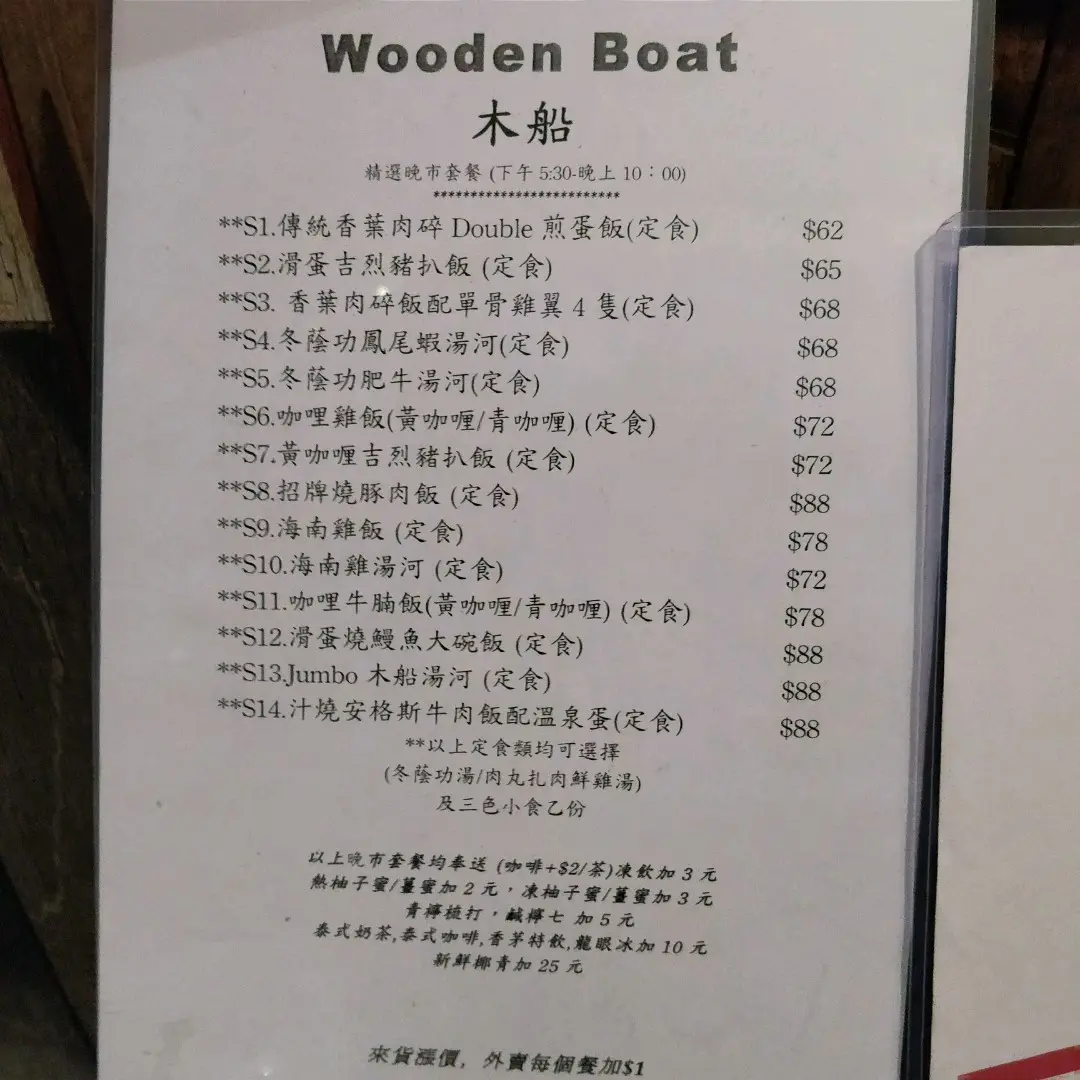 Wooden Boat
木船
精選晚市套餐 (下午 5:30-晚上 10：00)
*************************
**S1.傳統香葉肉碎 Double 煎蛋飯(定食) $62
**S2.滑蛋吉烈豬扒飯 (定食) $65
**S3. 香葉肉碎飯配單骨雞翼 4 隻(定食) $68
**S4.冬蔭功鳳尾蝦湯河(定食) $68
**S5.冬蔭功肥牛湯河(定食) $68
**S6.咖哩雞飯(黃咖喱/青咖喱) (定食) $72
**S7.黃咖喱吉烈豬扒飯 (定食) $72
**S8.招牌燒豚肉飯 (定食) $88
**S9.海南雞飯 (定食) $78
**S10.海南雞湯河 (定食) $72
**S11.咖哩牛腩飯(黃咖喱/青咖喱) (定食) $78
**S12.滑蛋燒鰻魚大碗飯 (定食) $88
**S13.Jumbo 木船湯河 (定食) $88
**S14.汁燒安格斯牛肉飯配溫泉蛋(定食) $88
**以上定食類均可選擇
(冬蔭功湯/肉丸扎肉鮮雞湯)
及三色小食乙份
以上晚市套餐均奉送 (咖啡+$2/茶)凍飲加 3 元
熱柚子蜜/薑蜜加 2 元，凍柚子蜜/薑蜜加 3 元
青檸梳打，鹹檸七 加 5 元
泰式奶茶,泰式咖啡,香茅特飲,龍眼冰加 10 元
新鮮椰青加 25 元
來貨漲價, 外賣每個餐加$1